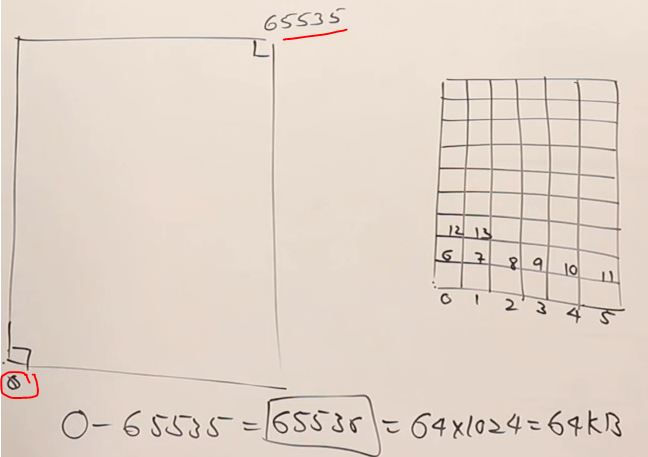 65535
12 13
6 7 8 9 10 11
0 1 2 3 4 5
0
0-65535 = 65536 = 64×1024 = 64KB